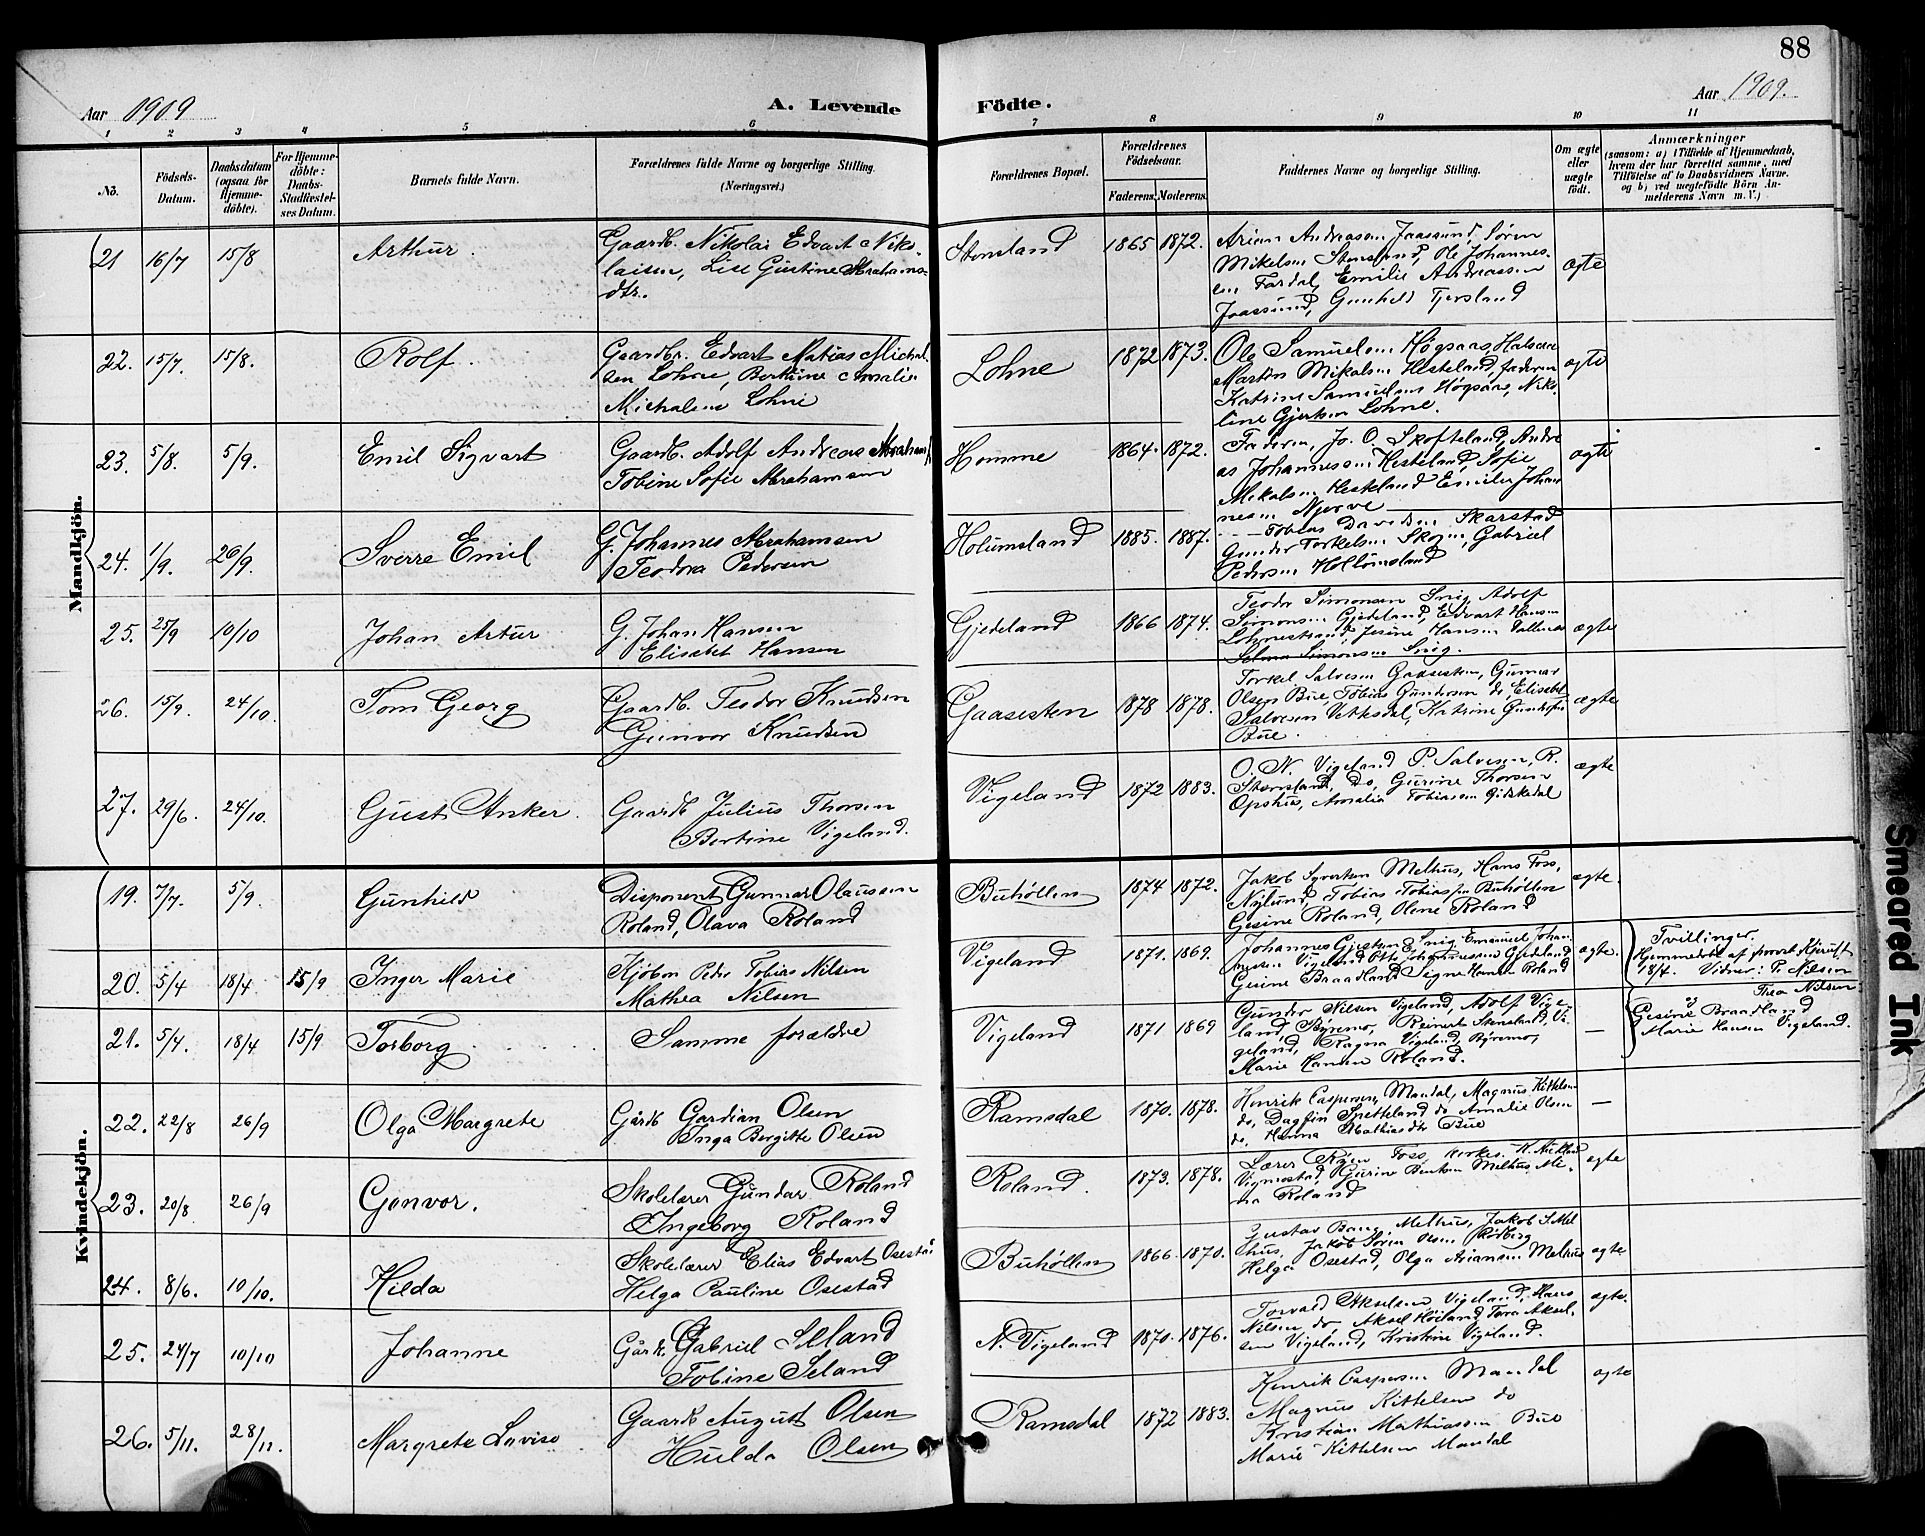 88
Aar 1909
A. Levende Födte.
Aar 1909.
1 2 3 4 5 6 7 8 9 10 11
No.
Födsels-Datum.
Daabsdatum (ogsaa for Hjemme-döbte).
For Hjemme-döbte: Daabs-Stadfæstel-ses Datum.
Barnets fulde Navn.
Forældrenes fulde Navne og borgerlige Stilling. (Næringsvei.)
Forældrenes Bopæl.
Forældrenes Födselsaar.
Faderens. Moderens.
Faddernes Navne og borgerlige Stilling.
Om ægte eller uægte födt.
Anmærkninger
(saasom: a) i Tilfælde af Hjemmedaab,
hvem der har forrettet samme, med
Tilföielse af to Daabsvidners Navne.
og b) ved uægtefödte Börn An-
melderens Navn m. V.)
Mandkjön.
21 16/7 15/8 Arthur. Gaardb. Nikolai Edvart Niko-
laisen, Lise Gustine Abrahams-
dtr.
Stensland 1865 1872.
Arian Andreasen Jaassund, Sören
Mikelsen Stensland, Ole Johannes-
sen Fardal, Emilie Andreassen
Jaassund, Gunhild Tjersland
ægte
22. 15/7. 15/8. Rolf. Gaardbr. Edvart Matias Michal-
sen Lohne, Bertine Amalie
Michalsen Lohne
Lohne 1872 1873.
Ole Samuelsen Høgsaas, Halsaa
Martin Mikalsen Hesteland, faderen
Katrine Samuelsen Høgsaas, Niko-
line Gjertsen Lohne.
ægte
23. 5/8. 5/9. Emil Sigvart Gaardb. Adolf Andreas Abrahams
Tobine Sofie Abrahamsen
Homme 1864. 1872.
Faderen, Jo. O. Skofteland, Andre
as Johannessen Hesteland, Sofie
Mikalsen Hesteland Emilie Johan
nesen
ægte
24. 1/9. 26/9. Sverre Emil G. Johannes Abrahamsen
Teodora Pedersen
Holumsland 1885. 1887.
Tobias Davidsen Skarstad
Gunder Torkelsen Skogen, Gabriel
Pedersen Hollumsland
25. 25/9 10/10 Johan Artur G. Johan Hansen
Elisabet Hansen
Gjedeland 1866 1874.
Teodor Simonsen Snig Adolf
Simonsen Gjedeland, Edvart Hansen
Lohnestrand, Jesine Hansen
Selma Simonsen Snig.
ægte
26. 15/9. 24/10. Tom Georg Gaardb. Teodor Knudsen
Gunvor Knudsen
Gaasesten 1878 1878.
Torkel Salvesen Gaasesten, Gunnar
Olsen Bue, Tobias Gundersen do, Elisabet
Salvesen Vetksdal, Katrine
Bue.
ægte
27. 29/6. 24/10. Gust Anker. Gaardb Julius Thorsen
Bertine Vigeland.
Vigeland 1872 1883.
O. N. Vigeland P. Salvesen, R.
Stensland, do, Gurine Thorsen
Opshus, Amalia Tobiasen Gidskedal
ægte
Kvindekjön.
19. 7/7. 5/9. Gunhild Disponent Gunnar Olaussen
Roland, Olava Roland
Buhöllen 1874 1872.
Jakob Syvertsen Melhus, Hans Foss,
Nylund, Tobias Tobiassen Buhöllen
Gesine Roland, Olene Roland
ægte.
20. 5/4 18/4 15/9 Inger Marie Kjöbm Peder Tobias Nilsen
Mathea Nilsen
Vigeland 1871. 1869.
Johannes Gjertsen Snig Emanuel Johan-
nesen Vigeland Otto Johannessen Gjedeland
Gesine Braadland Signe Hansen Roland
ægte.
Tvillinger,
18/4. Vidner: P. Nilsen
Thea Nilsen
21. 5/4. 18/4 15/9 Torborg Samme forældre
Vigeland 1871 1869
Gunder Nilsen Vigeland, Adolf Vige-
land, Byremo, Reinert Stensland, Vi-
geland, Ragna Vigeland, Byremo,
Marie Hansen Roland.
—
Gesine Braadland
Marie Hansen Vigeland.
22. 22/8 26/9 Olga Margrete Gårdb Gardian Olsen
Inga Bergitte Olsen
Ramsdal 1870. 1878.
Henrik Caspersen, Mandal, Magnus Kittelsen
do, Dagfin Spetteland do Amalie Olsen
do, Hanna Mathiasdtr Bue
—
23. 20/8 26/9 Gonvor. Skolelærer Gundar Roland
Ingeborg Roland
Roland. 1873. 1878.
Lærer Foss,
Vigmostad, Gurine Bentsen Melhus, Mi-
na Roland
ægte
24. 8/6. 10/10. Hilda Skolelærer Elias Edvart Osestad
Helga Pauline Osestad
Buhöllen 1866. 1870.
Gustav Melhus, Jakob S. Mel
hus, Jakob Sören Olsen
Helga Osestad, Olga Ariansen Melhus
ægte
25. 24/7 10/10 Johanne Gårdb. Gabriel Seland
Tobine Seland
N. Vigeland 1870. 1876.
Torvald Akselsen Vigeland, Hans
Nilsen do, Aksel Høiland, Tora Aksel-
sen Vigeland, Kristine Vigeland.
ægte.
26. 5/11. 28/11. Margrete Lovise Gaardb August Olsen
Hulda Olsen
Ramsdal 1872 1883.
Henrik Caspersen Mandal
Magnus Kittelsen do
Kristian Mathiassen Bue
Marie Kittelsen Mandal
ægte
Smeared Ink